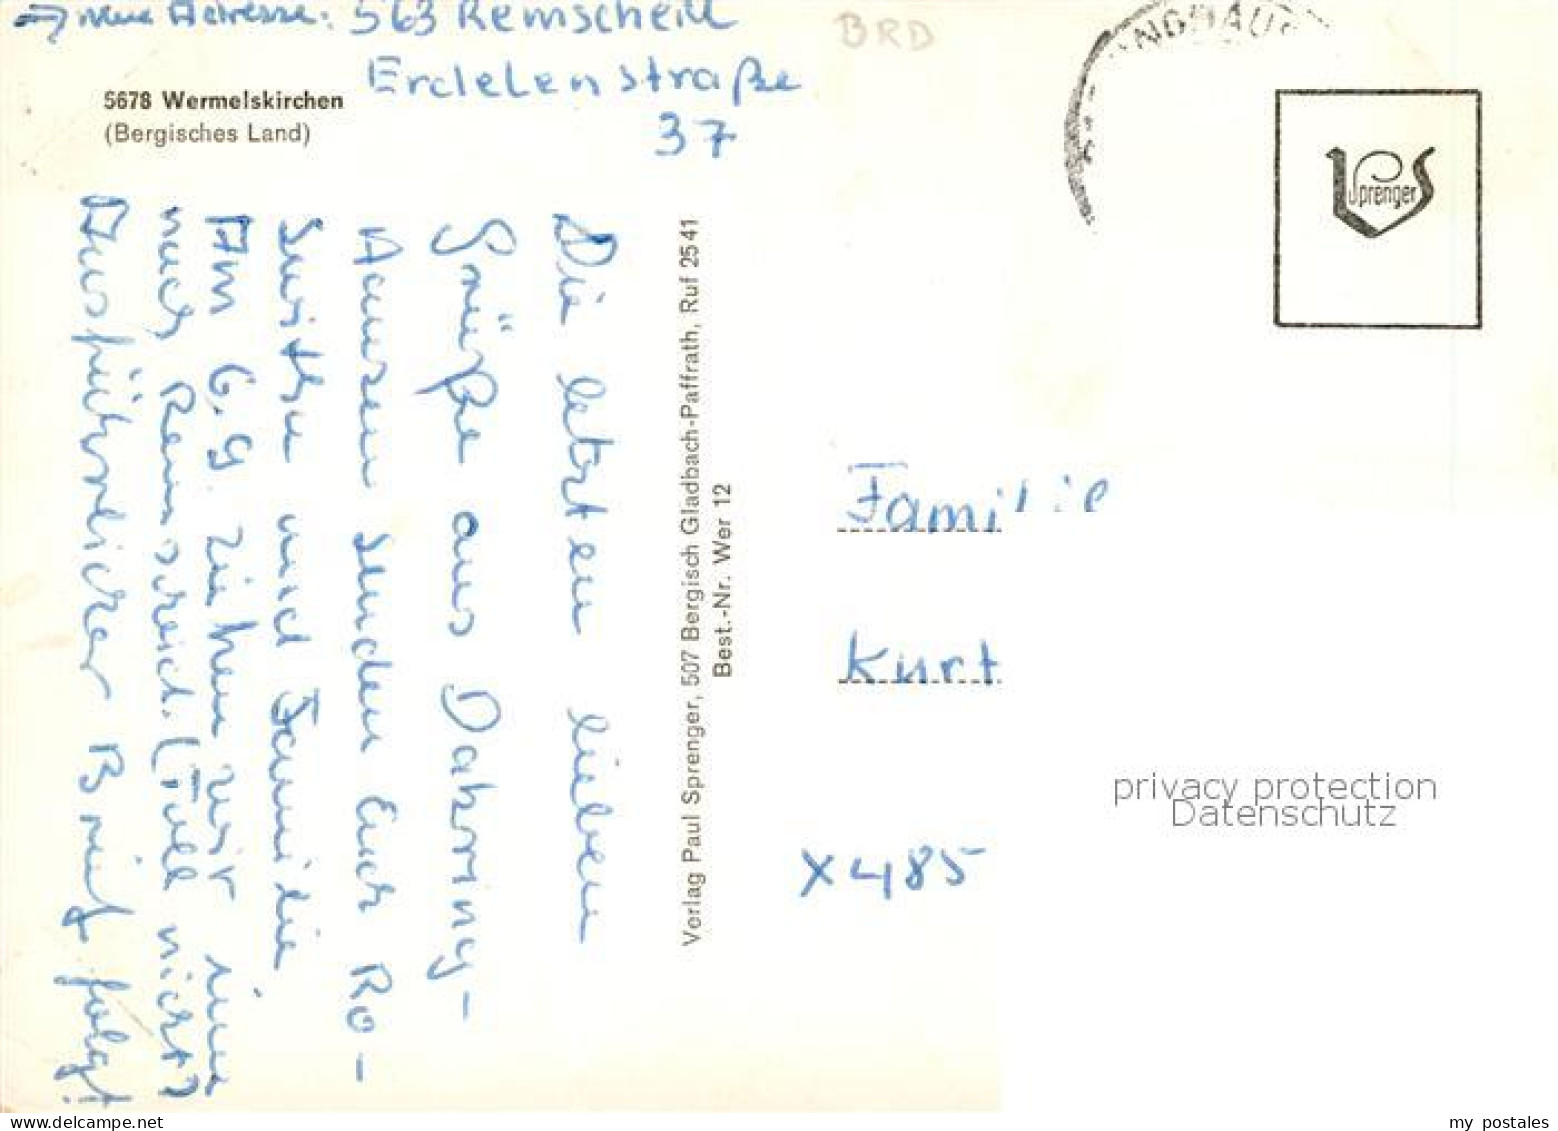 → neue Adresse: 563 Remscheid
Erdelenstraße
37
BRD
5678 Wermelskirchen
(Bergisches Land)
Sprenger
Die letzten lieben
Grüße aus Dabring-
hausen senden Euch Ro-
switha und Familie
Am 6.9. ziehen wir um
nach Remscheid. (Toll nicht?)
Ausführlicher Brief folgt!
Verlag Paul Sprenger, 507 Bergisch Gladbach-Paffrath, Ruf 2541
Best.-Nr. Wer 12
Familie
Kurt
X485
privacy protection
Datenschutz
my postales